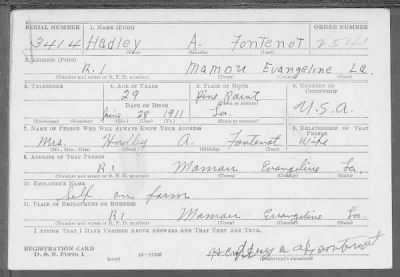 SERIAL NUMBER 1. NAME (Print) ORDER NUMBER
3414 Hadley A. Fontenot 2541
(First) (Middle) (Last)
2. ADDRESS (Print)
R.1 Mamou Evangeline La.
(Number and street or R. F. D. number) (Town) (County) (State)
3. TELEPHONE 4. AGE IN YEARS 5. PLACE OF BIRTH 6. COUNTRY OF CITIZENSHIP
29 Pine Point
DATE OF BIRTH (Town or county)
June 28 1911 La. U.S.A.
(Exchange) (Number) (Mo.) (Day) (Yr.) (State or country)
7. NAME OF PERSON WHO WILL ALWAYS KNOW YOUR ADDRESS 8. RELATIONSHIP OF THAT PERSON
Mrs. Hadly A. Fontenot Wife
(Mr., Mrs., Miss) (First) (Middle) (Last)
9. ADDRESS OF THAT PERSON
R1 Mamou Evangeline La.
(Number and street or R. F. D. number) (Town) (County) (State)
10. EMPLOYER'S NAME
Self on farm
11. PLACE OF EMPLOYMENT OR BUSINESS
R1 Mamou Evangeline La.
(Number and street or R. F. D. number) (Town) (County) (State)
I AFFIRM THAT I HAVE VERIFIED ABOVE ANSWERS AND THAT THEY ARE TRUE.
REGISTRATION CARD
D. S. S. Form 1 (over) 16—17105 (Registrant's signature)